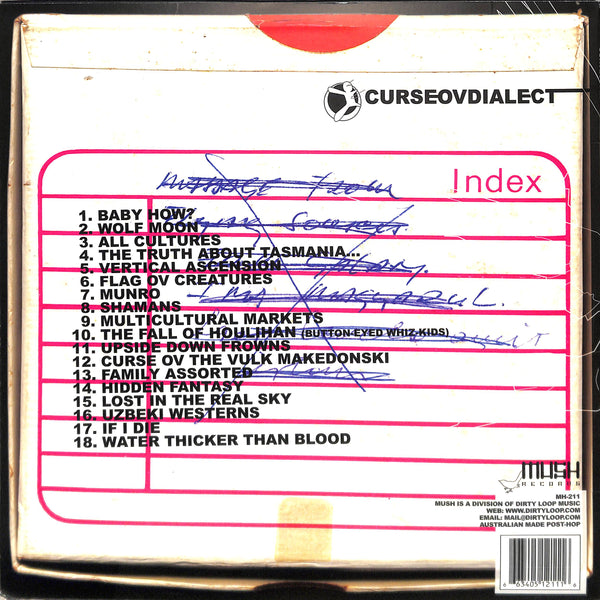 CURSEOVDIALECT
Index
1. BABY HOW?
2. WOLF MOON
3. ALL CULTURES
4. THE TRUTH ABOUT TASMANIA...
5. VERTICAL ASCENSION
6. FLAG OV CREATURES
7. MUNRO
8. SHAMANS
9. MULTICULTURAL MARKETS
10. THE FALL OF HOULIHAN (BUTTON-EYED WHIZ-KIDS)
11. UPSIDE DOWN FROWNS
12. CURSE OV THE VULK MAKEDONSKI
13. FAMILY ASSORTED
14. HIDDEN FANTASY
15. LOST IN THE REAL SKY
16. UZBEKI WESTERNS
17. IF I DIE
18. WATER THICKER THAN BLOOD
MUSH
RECORDS
MH-211
MUSH IS A DIVISION OF DIRTY LOOP MUSIC
WEB: WWW.DIRTYLOOP.COM
EMAIL: MAIL@DIRTYLOOP.COM
AUSTRALIAN MADE POST-HOP
6 63405 12111 6